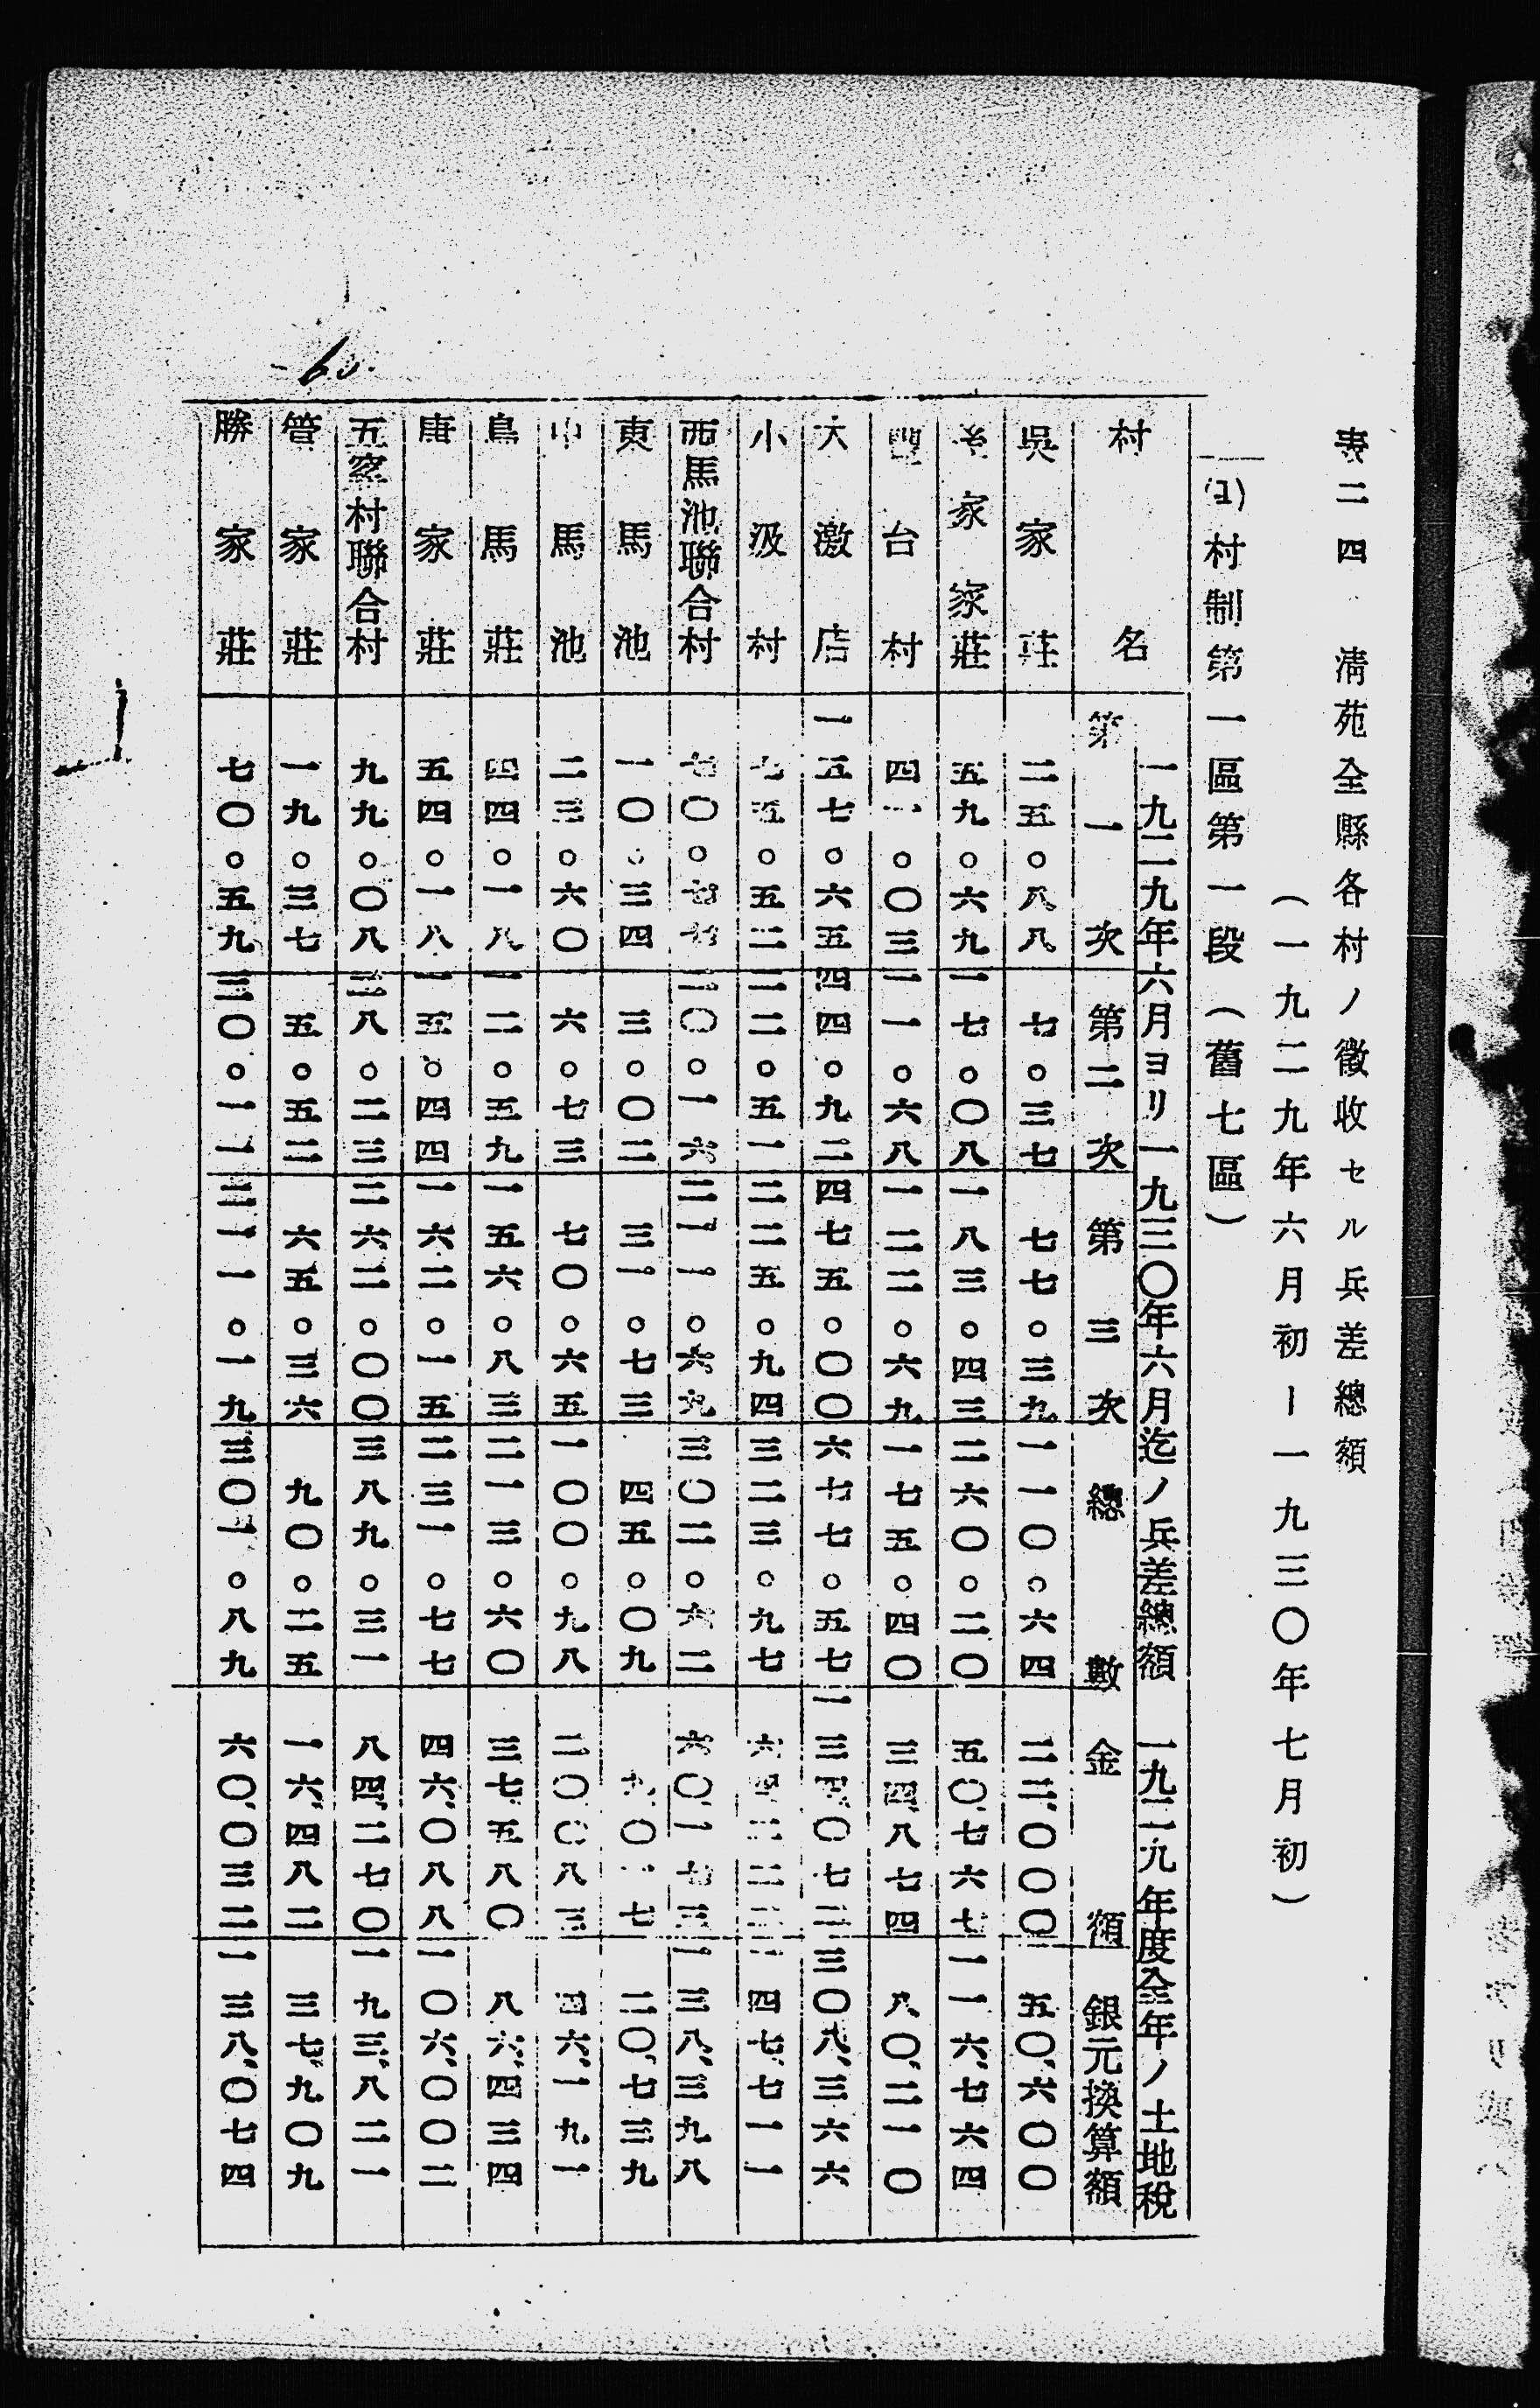 表二四 清苑全縣各村ノ徵收セル兵差總額
(一九二九年六月初ー一九三〇年七月初)
(1)村制第一區第一段(舊七區)
一九二九年六月ヨリ一九三〇年六月迄ノ兵差總額 一九二九年度全年ノ土地稅
村名 第一次 第二次 第三次 總數 金額 銀元換算額
吳家莊 二五。八八 七。三七 七七。三九 一一〇。六四 二二、〇〇〇 五〇、六〇〇
家家莊 五九。六九 一七。〇八 一八三。四三 二六〇。二〇 五〇、七六七 一一六、七六四
台村 四一。〇三 一一。六八 一二二。六九 一七五。四〇 三四、八七四 八〇、二一〇
大激店 一五七。六五 四四。九二 四七五。〇〇 六七七。五七 一三四、〇七二 三〇八、三六六
小汲村 七五。五二 二二。五一 二二五。九四 三二三。九七 六四、二二二 一四七、七一一
西馬池聯合村 七〇。七七 二〇。一六 二一一。六九 三〇二。六二 六〇、一七三 一三八、三九八
東馬池 一〇。三四 三。〇二 三一。七三 四五。〇九 九、〇一七 二〇、七三九
中馬池 二三。六〇 六。七三 七〇。六五 一〇〇。九八 二〇、〇八三 四六、一九一
鳥馬莊 四四。一八 一二。五九 一五六。八三 二一三。六〇 三七、五八〇 八六、四三四
唐家莊 五四。一八 一五。四四 一六二。一五 二三一。七七 四六、〇八八 一〇六、〇〇二
五家村聯合村 九九。〇八 二八。二三 二六二。〇〇 三八九。三一 八四、二七〇 一九三、八二一
管家莊 一九。三七 五。五二 六五。三六 九〇。二五 一六、四八二 三七、九〇九
勝家莊 七〇。五九 二〇。一一 二一一。一九 三〇一。八九 六〇、〇三二 一三八、〇七四